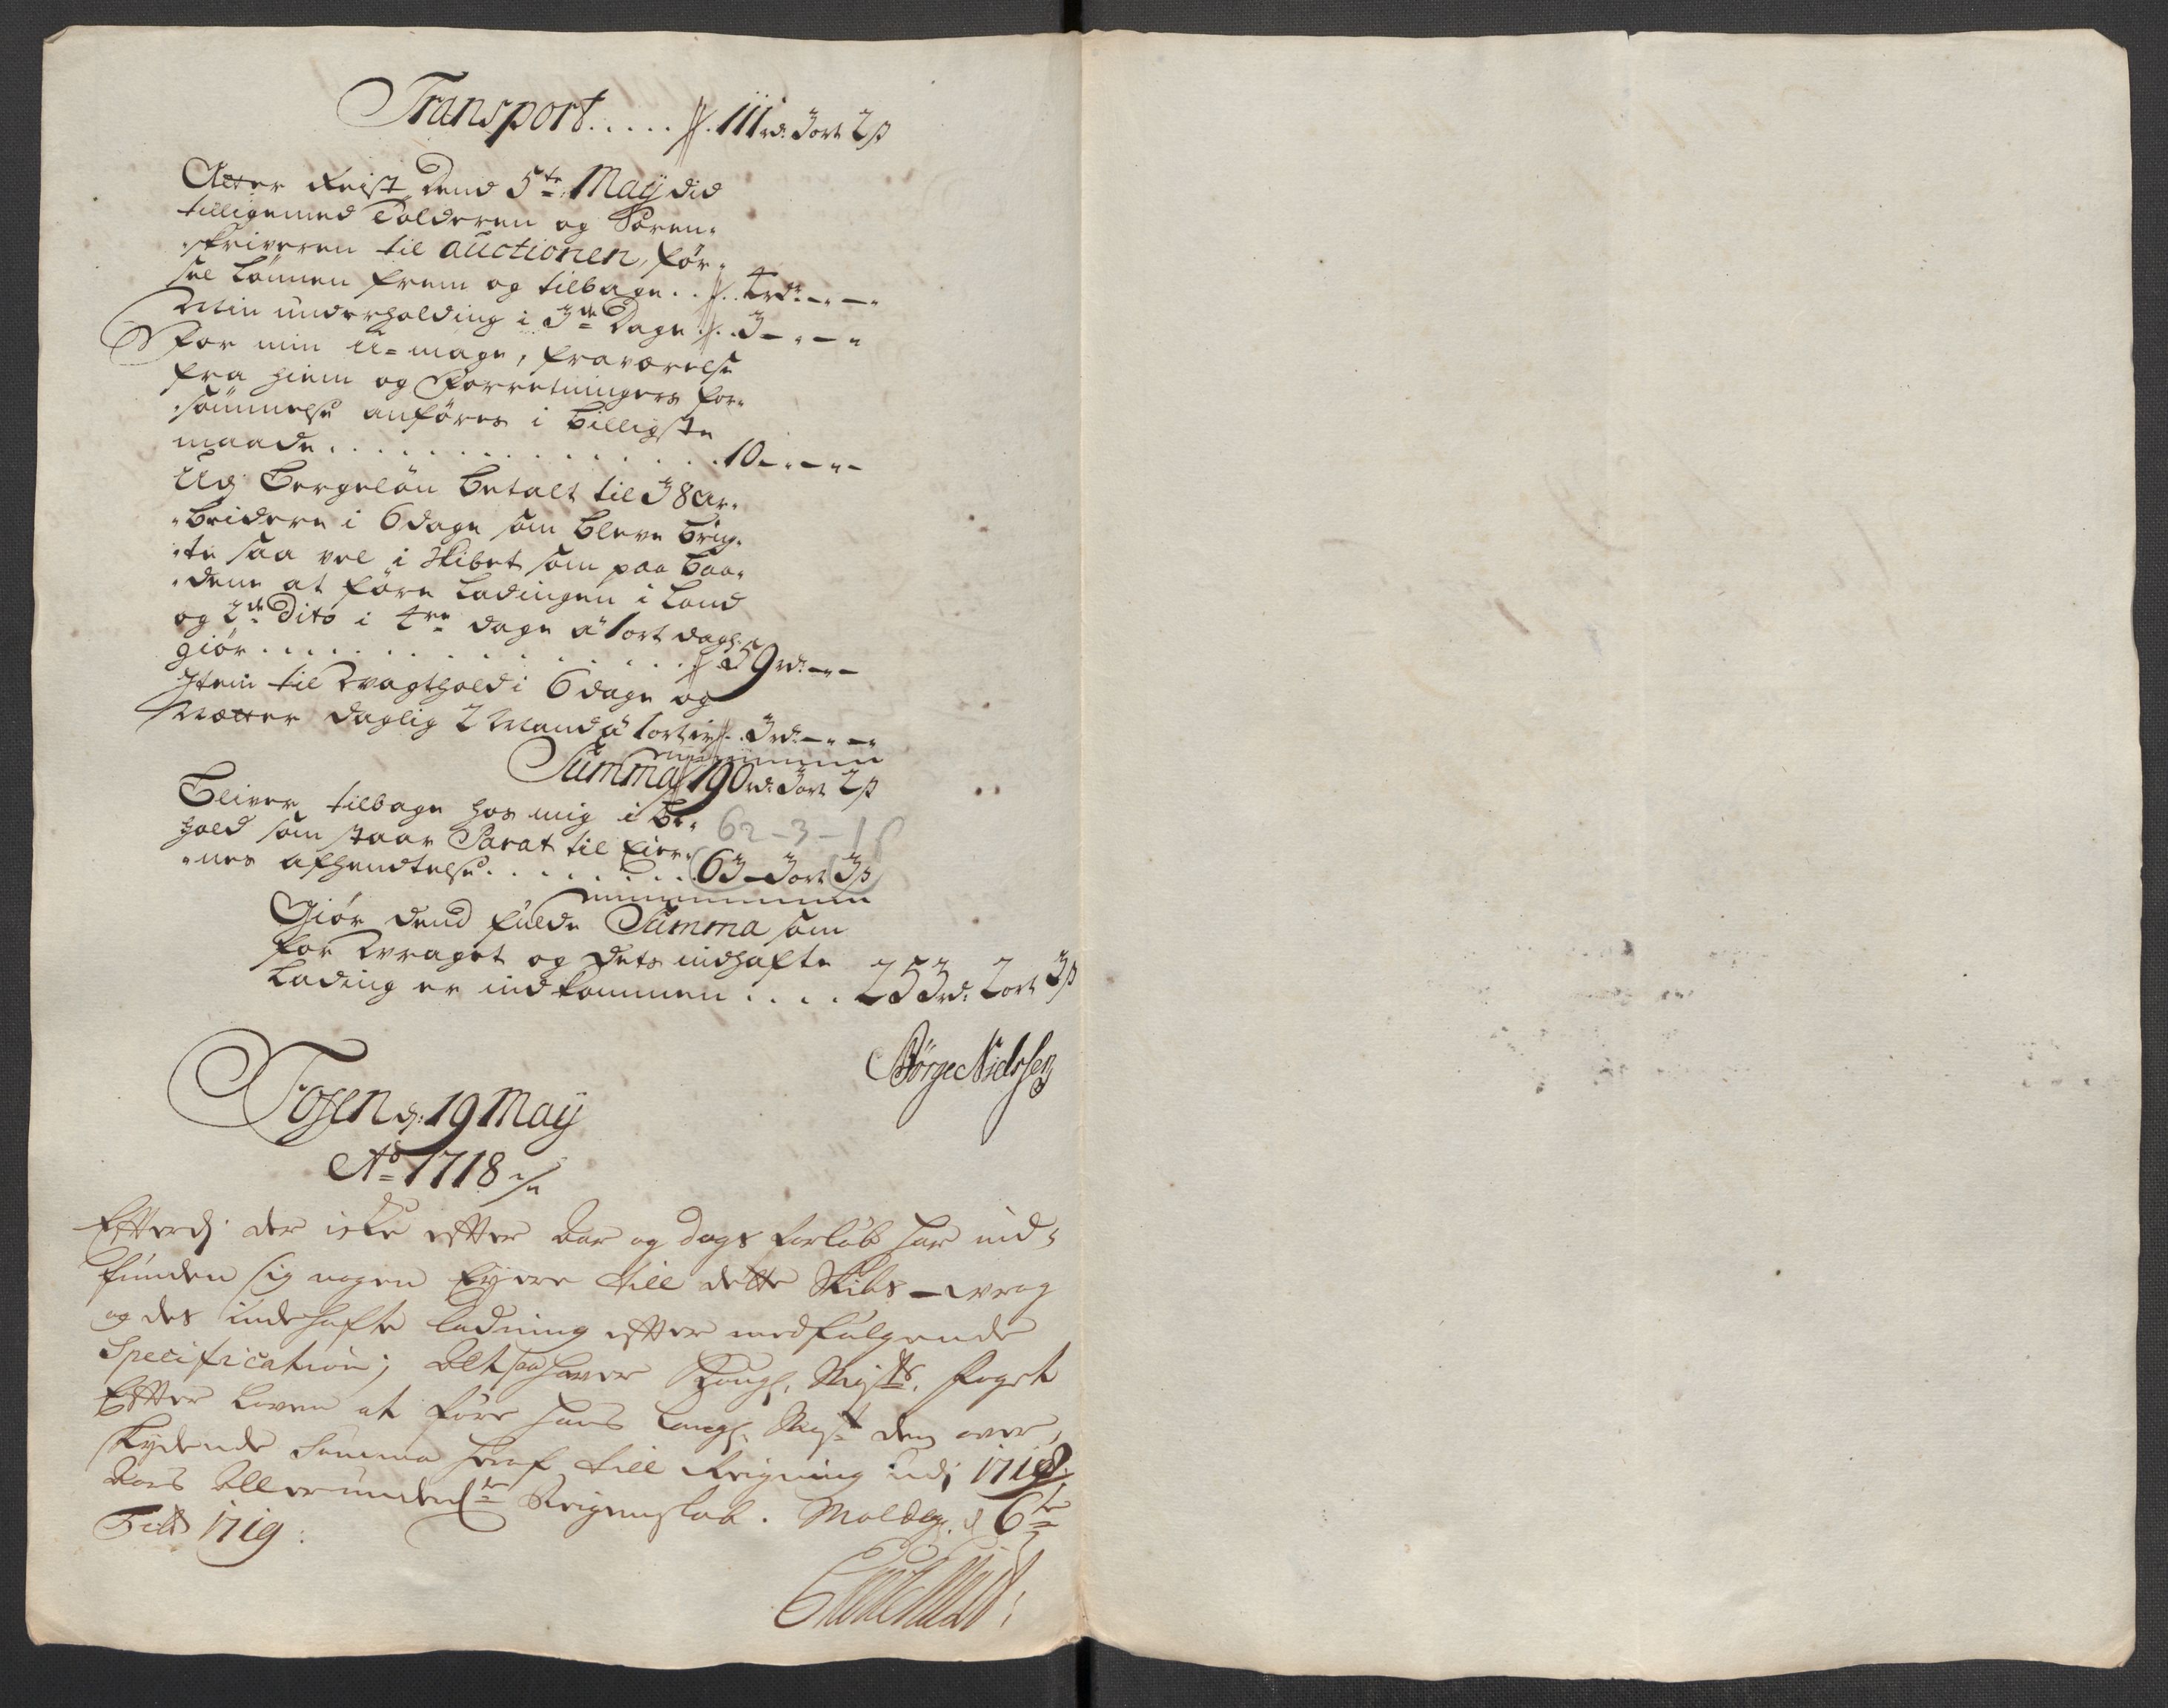 Transport..... 111 rd: 3 ort 2 ß
Atter Reist dend 5te May did
tilligemed Tolderen og Soren-
-skriveren til auctionen, før-
sel Lönnen frem og tilbage.. 4 rd:-"-"
Min underholding i 3de Dage.. 3-"-"
For min U=mage, fraværelse
fra hiem og Forretningers for-
-sömmelse anføres i billigste
maade................10-"-"-
Udj Bergelön betalt til 38 Ar-
-beidere i 6 dage som bleve brug-
-te saa vel i Skibet som paa Baa-
-dene at føre Ladingen i Land
og 2de Dito i 4re dage a 1 ort dagl:
giör................ 59 rd:-"-
Item til Vagthold i 6 dage og
Nætter daglig 2 Mand a 1 ort er 3 rd:-"-"
Summa 190 rd: 3 ort 2 ß
Bliver tilbage hos mig i Be-
hold som staar Parat til Eier-
62-3-18
-nes afhendtelse......... 63-3 ort 3 ß
Giör dend fulde Summa som
for Vraget og dets indhafte
Lading er indkommen.... 253 rd: 2 ort 3 ß
Børge Nielssen
Fosen d: 19 May
Ao 1718
Efterdj der icke efter Aar og dags forløb har ind-
funden sig nogen Eyere till dette Skibs-wrag
og des indehafte ladning efter medfølgende
Specification; Altsaa haver Kongl. Mayts. foget
Efter Loven at føre Hans Kongl. Mayt den over-
skydende Summa heraf till Reigning udj 1718
Aars Allerunderdte Reigenskab. Moldeg. d 6te
1719: